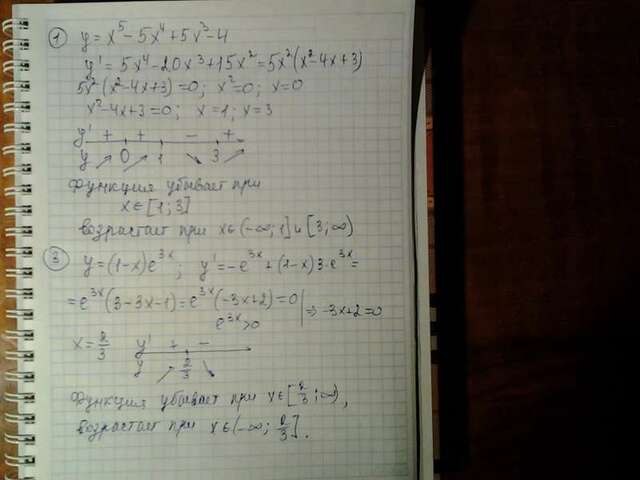 ① y = x⁵ - 5x⁴ + 5x³ - 4
y' = 5x⁴ - 20x³ + 15x² = 5x²(x² - 4x + 3)
5x²(x² - 4x + 3) = 0; x² = 0; x = 0
x² - 4x + 3 = 0; x = 1; x = 3
y' + + - +
y ↗ 0 ↗ 1 ↘ 3 ↗
Функция убывает при
x ∈ [1; 3]
возрастает при x ∈ (-∞; 1] ∪ [3; ∞)
③ y = (1-x)e³ˣ; y' = -e³ˣ + (1-x)3·e³ˣ =
= e³ˣ(3 - 3x - 1) = e³ˣ(-3x + 2) = 0 | ⇒ -3x + 2 = 0
e³ˣ > 0
x = 2/3 y' + -
y ↗ 2/3 ↘
Функция убывает при x ∈ [2/3; ∞),
возрастает при x ∈ (-∞; 2/3].